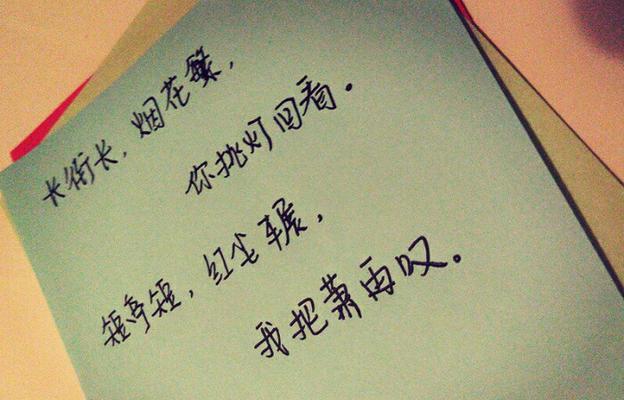 长街长，烟花繁，
你挑灯回看。
短亭短，红尘辗，
我把萧再叹。